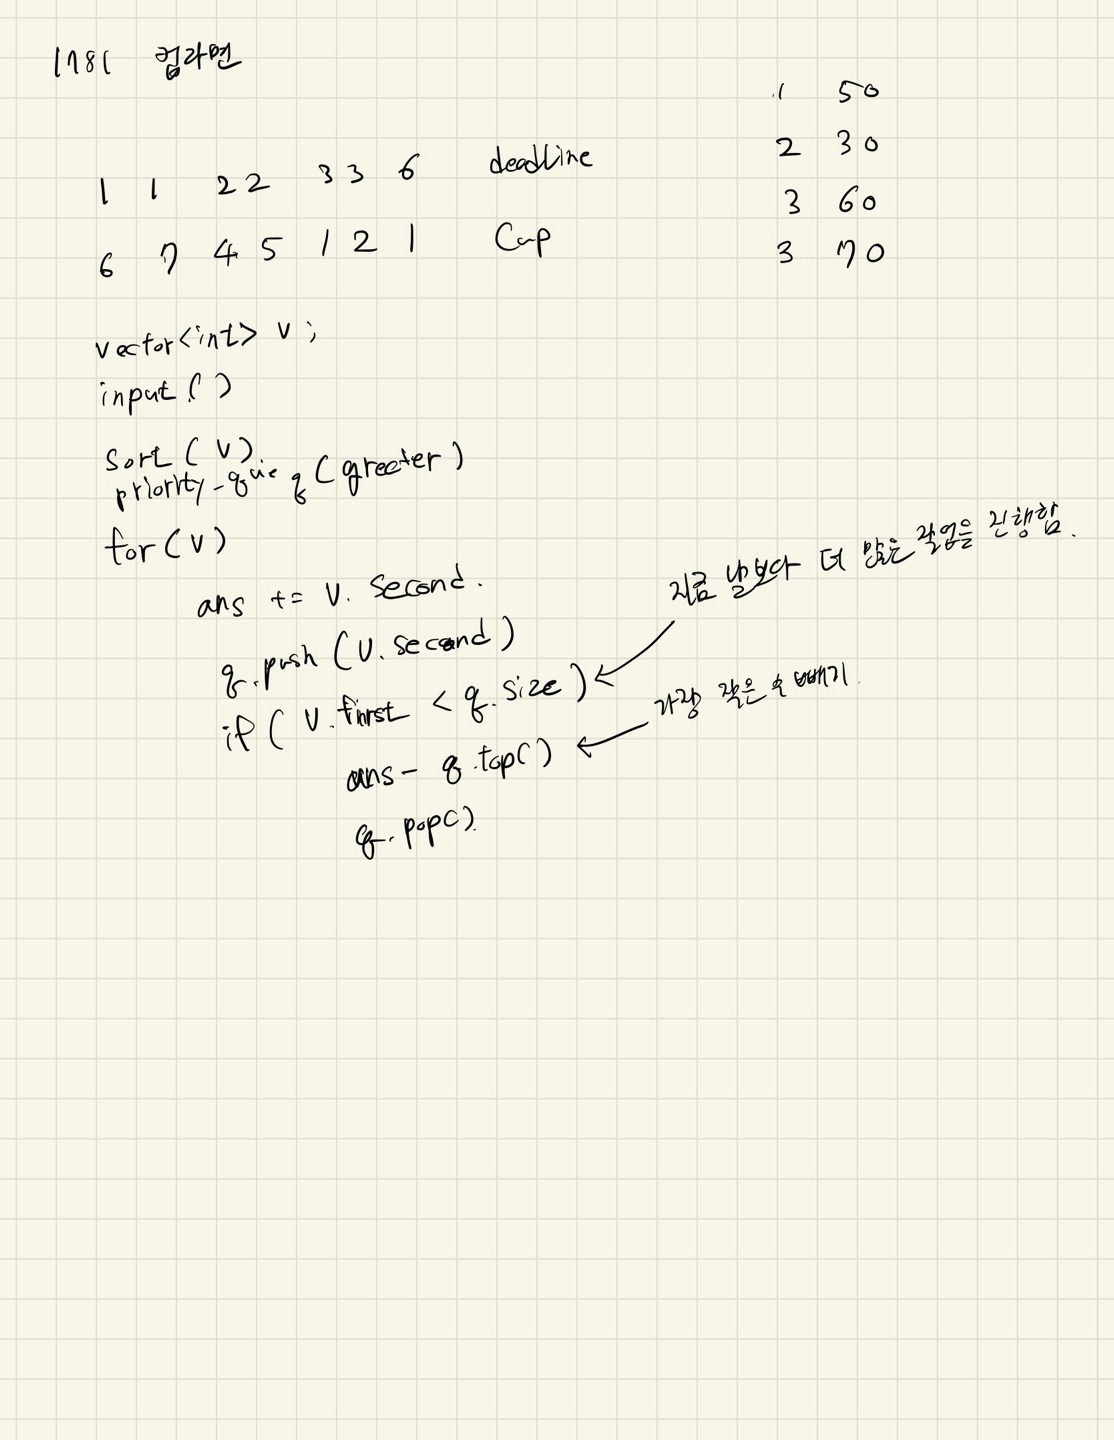 1781 컵라면
1 50
2 30
3 60
3 70
1 1 2 2 3 3 6 deadline
6 7 4 5 1 2 1 Cup
vector<int> v;
input()
Sort(v)
priority-que q(greater)
for(v)
ans += v.second.
q.push(v.second)
if(v.first < q.size)
지금 날보다 더 많은 작업을 진행함.
가장 작은 수 빼기.
ans- q.top()
q.pop()